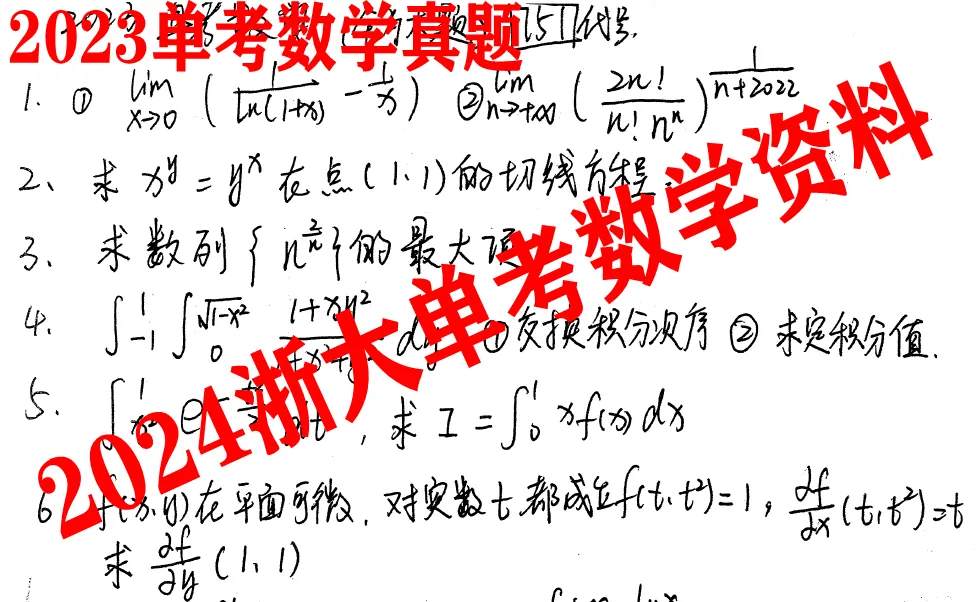 2023单考数学真题
751代号.
1. ① lim x→0 ( 1/ln(1+x) - 1/x ) ② lim n→+∞ ( 2n!/n! nⁿ )^(1/(n+2022))
2、求 x^y = y^x 在点(1、1)的切线方程.
3、求数列{n^(2/n)}的最大项
4. ∫₋₁¹ ∫₀^√(1-x²) (1+xy²)/(1+x²+y²) dy ①交换积分次序 ② 求定积分值.
5. , 求 I = ∫₀¹ xf(x) dx
6 f(x,y)在平面可微. 对实数t都成立f(t,t²)=1, ∂f/∂x (t,t²)=t
求 ∂f/∂y (1、1)
2024浙大单考数学资料